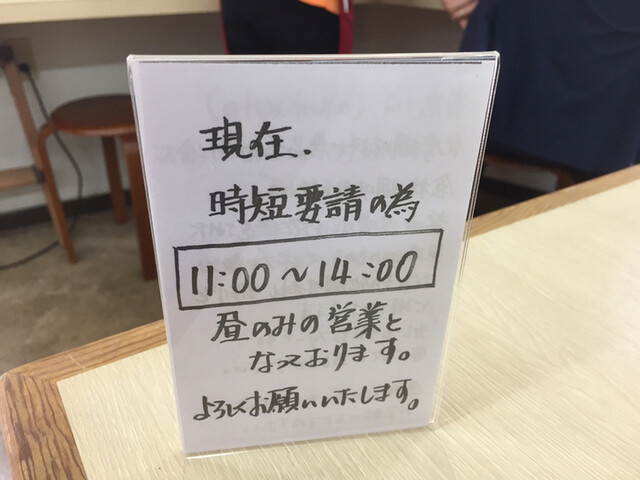 現在、
時短要請の為
11:00～14:00
昼のみの営業と
なっております。
よろしくお願いいたします。